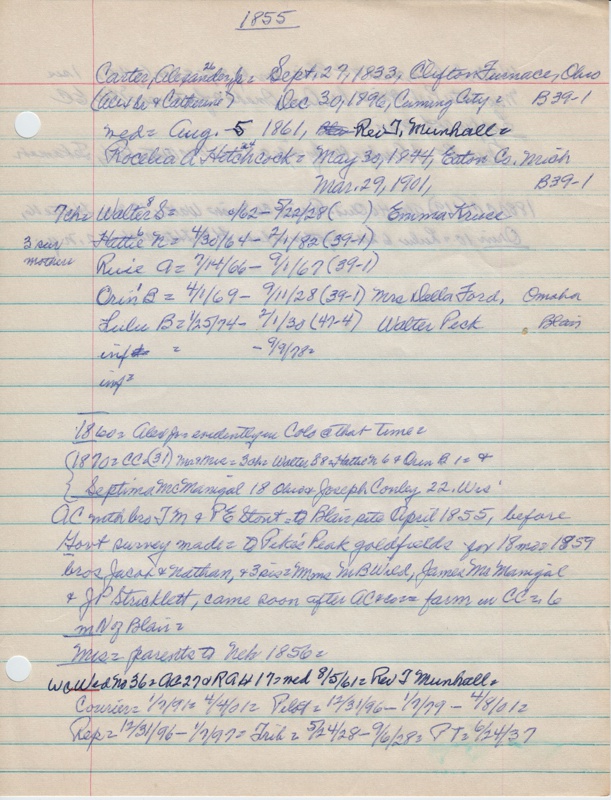 1855
Carter, Alexander Jr = Sept. 27, 1833, Clifton Furnace, Ohio
26
(Alex Sr & Catherine) Dec. 30, 1896, Cuming City = B39-1
med = Aug. 5 1861, Rev T. Munhall =
Rocelia A Hotchcock = May 30, 1844, Eaton Co. Mich
24
Mar. 29, 1901, B39-1
7 chr Walter S = /62 - 5/22/28 ( ) Emma Kruse
8
3 sur mother Hattie N = 4/30/64 - 2/1/82 (39-1)
6
Rosie A = 7/14/66 - 9/1/67 (39-1)
Orin B = 4/1/69 - 9/11/28 (39-1) Mrs Della Ford, Omaha
1
Lulu B = 1/25/74 - 2/1/30 (47-4) Walter Peck Blair
inf = - 9/9/78 =
inf =
1860 = Alex Jr evidently in Colo @ that time =
(1870 = CC (31) Mr & Mrs = 3 ch = Walter S 8 & Hattie N 6 & Orin B 1 = &
Septima McManigal 18 Ohio & Joseph Conley 22. Wis
AC with bro J M & P E Stout = to Blair site April 1855, before
Govt survey made = to Pike's Peak goldfields for 18 mo = 1859
bros Jacob & Nathan, & 3 sis = Mmes M B Wild, James McManigal
& J P Stricklett, came soon after AC & co = farm in CC = 6
m N of Blair =
Mrs = parents to Neb 1856 =
WC Wed No 36 = AC 27 & RAH 17 = med 8/5/61 = Rev T Munhall =
Courier = 1/7/97 = 4/4/01 = Pilot = 12/31/96 - 1/7/79 - 4/8/01 =
Rep = 12/31/96 - 1/7/97 = Trib = 5/24/28 - 9/6/28 = PT = 6/24/37